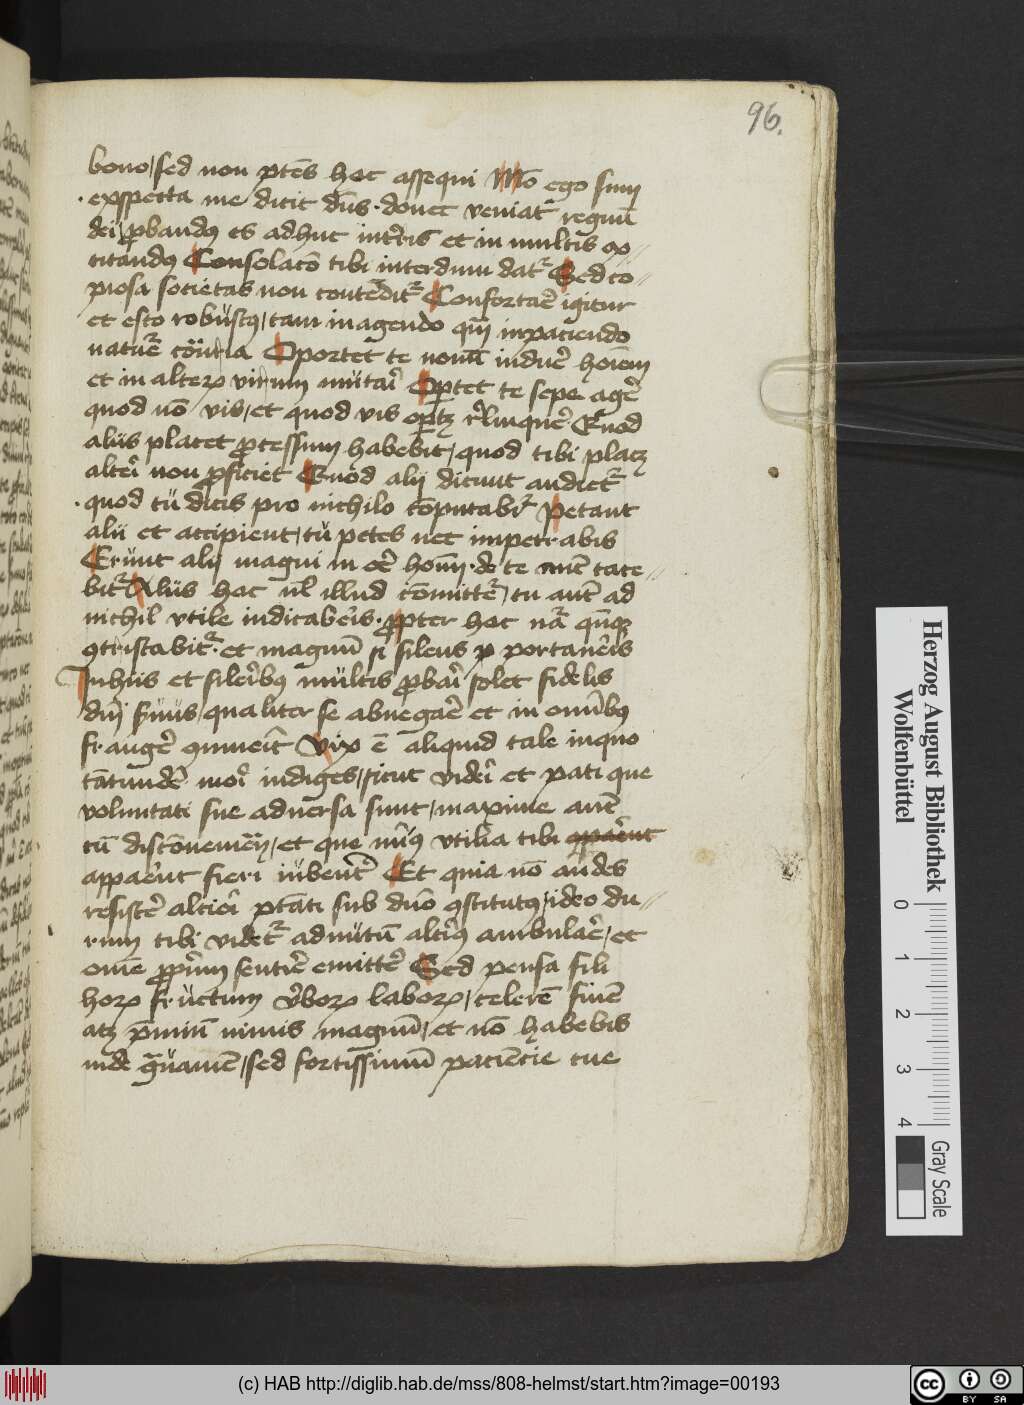 96.
bono / sed non potes hoc assequi Modo ego sum
expecta me dicit dns . donec veniat regnū
dei / probandꝯ es adhuc in tris et in multis ex//
citandꝯ Consolacō tibi interdum datr Sed co//
piosa sotietas non conceditr Confortare igitur
et esto robustꝯ / tam in agendo quā in paciendo
nature cōtraria Oportet te nouū induere hoīem
et in alterꝝ virum mutari Oportet te sepe agere
quod nō vis / et quod vis oportꝫ relinquere Quod
aliis placet processum habebit / quod tibi placꝫ
alteri non proficiet Quod alij dicunt audietr
quod tu dicis pro nichilo cōputabitr Petunt
alii et accipient / tu petes nec impetrabis
Erunt alij magni in ore homī . de te autē tace//
bitr Aliis hoc ul illud cōmittetr / tu autē ad
nichil vtile iudicaberis . propter hoc natura qn̄qꝫ
ꝯtristabitr . et magnū si silens portaueris
In hiis et silibꝯ multis probari solet fidelis
dnī seruus / qualiter se abnegare et in omībꝯ
frangere ꝯsueuit Vix ē aliquid tale in quo
tantundē mori indiges / sicut videri et pati que
voluntati sue aduersa sunt / maxime autē
cū discōueniencia / et que minꝯ vtilia tibi apparent
apparent fieri iubentr Et quia nō audes
resistere altiori potestati sub dnō ꝯstitutꝯ / ideo du//
rum tibi videtr ad nutū alterius ambulare / et
omē proprium sentire omittere Sed pensa fili
horꝝ fructum verborꝝ laborꝝ / celerē finē
atqꝫ premiū nimis magnū / et nō habebis
inde grauamē / sed fortissimū paciencie tue
Herzog August Bibliothek
Wolfenbüttel
0 1 2 3 4
Gray Scale
(c) HAB http://diglib.hab.de/mss/808-helmst/start.htm?image=00193
cc BY SA